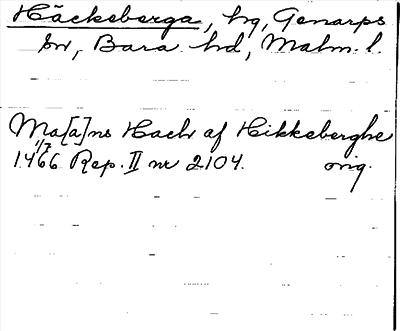 Häckeberga, hg, Genarps
sn, Bara hd, Malm. l.
Ma[a]ns Hack af Hikkeberghe
1466 1/7 Rep. II nr 2104. orig.